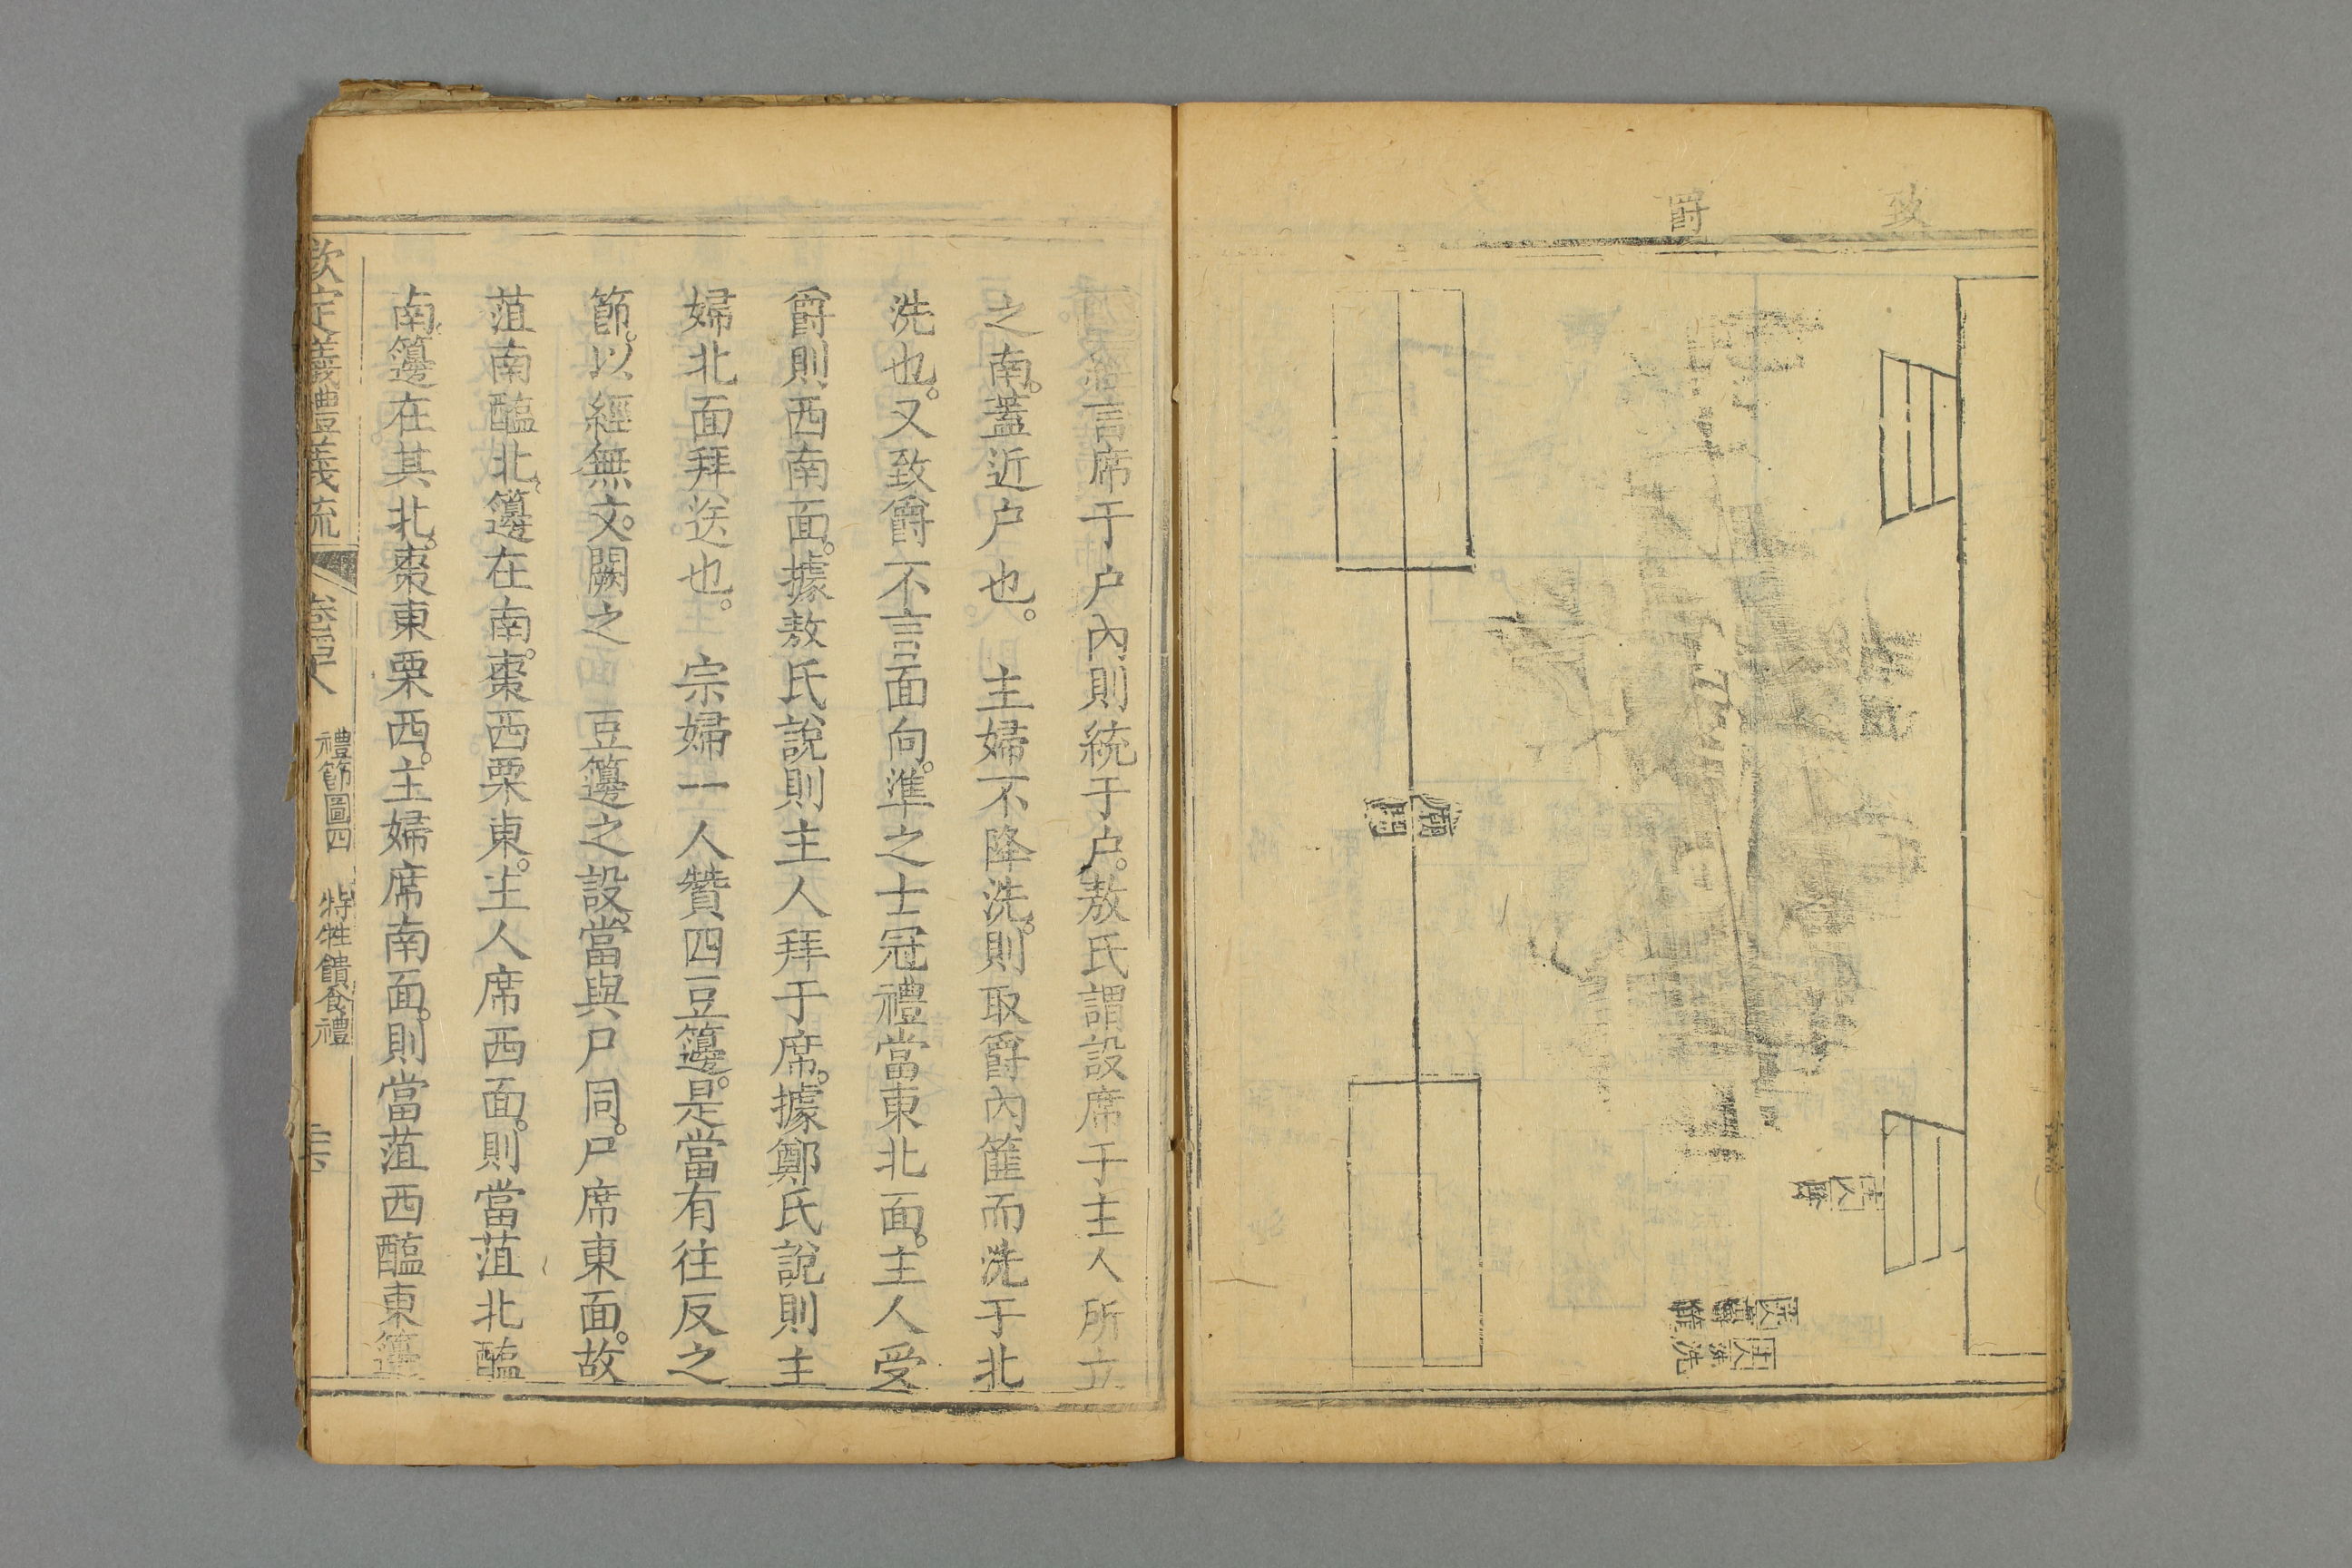 致
爵
主人降
主人奠爵
篚
主人洗
洗
廟門
言席于户內則統于户。敖氏謂設席于主人所立
之南。蓋近户也。 主婦不降洗。則取爵內篚而洗于北
洗也。又致爵不言面向。準之士冠禮當東北面。主人受
爵則西南面。據敖氏說則主人拜于席。據鄭氏說則主
婦北面拜送也。 宗婦一人贊四豆籩。是當有往反之
節。以經無文。闕之 豆籩之設。當與尸同。尸席東面。故
菹南醢北。籩在南。棗西栗東。主人席西面。則當菹北醢
南。籩在其北。棗東栗西。主婦席南面。則當菹西醢東籩
欽定儀禮義疏 禮節圖四 特牲饋食禮